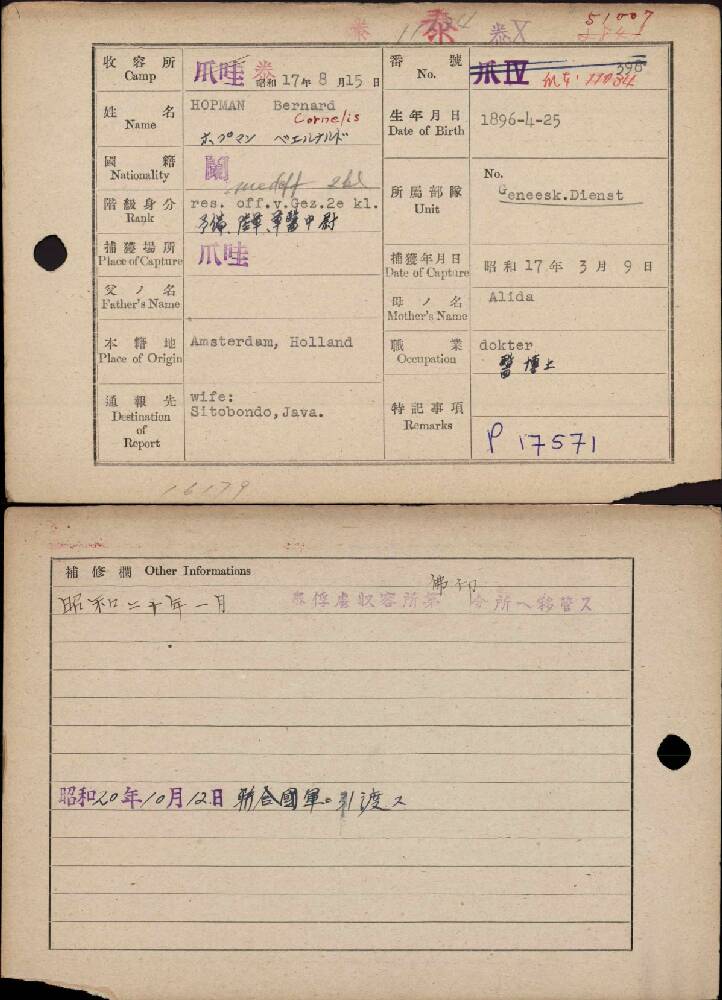 泰 泰 X 51007
收容所 Camp 爪哇 昭和17年8月15日
番號 No. 爪IV 398
姓名 Name HOPMAN Bernard
Cornelis
ホプマン ベエルナルド
生年月日 Date of Birth 1896-4-25
國籍 Nationality 蘭
階級身分 Rank res. off.v.Gez.2e kl.
予備、陸軍、軍醫中尉
所屬部隊 Unit No.
Geneesk.Dienst
捕獲場所 Place of Capture 爪哇
捕獲年月日 Date of Capture 昭和17年3月9日
父ノ名 Father's Name
母ノ名 Mother's Name Alida
本籍地 Place of Origin Amsterdam, Holland
職業 Occupation dokter
醫博士
通報先 Destination of Report wife:
Sitobondo, Java.
特記事項 Remarks P 17571
16179
補修欄 Other Informations
昭和二十年一月 泰俘虜収容所第 分所ヘ移管ス
昭和20年10月12日 聯合國軍ニ引渡ス